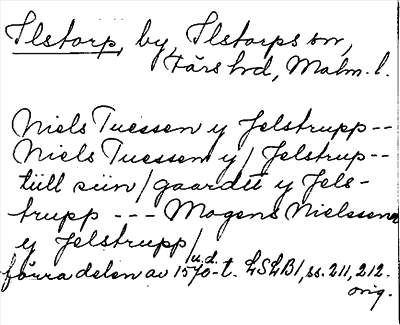 Ilstorp, by, Ilstorps sn,
Färs hrd, Malm. l.
Niels Tuessen y Jelstrupp --
Niels Tuessen y/ Jelstrup --
tiill siin/gaardtt y Jels-
trupp --- Mogens Nielssenn
y Jelstrupp/
u.d.
förra delen av 1570-t. LSLB1, ss. 211, 212.
orig.